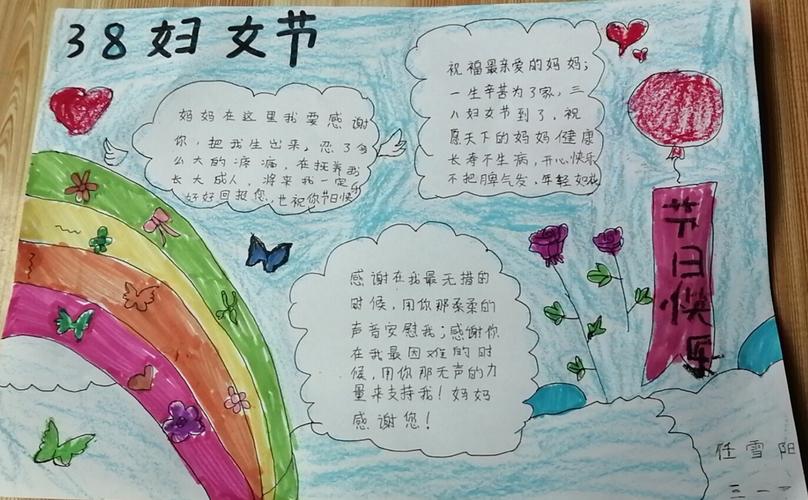 38妇女节
妈妈在这里我要感谢
你，把我生出来，忍了多
么大的疼痛，在抚养我
长大成人，将来我一定
好好回报您，也祝你节日快乐
祝福最亲爱的妈妈；
一生辛苦为了家，三
八妇女节到了，祝
愿天下的妈妈健康
长寿不生病，开心快乐
不把脾气发，年轻如花
感谢在我最无措的
时候，用你那柔柔的
声音安慰我；感谢你
在我最困难的时
候，用你那无声的力
量来支持我！妈妈
感谢您！
节日快乐
任雪阳
三一